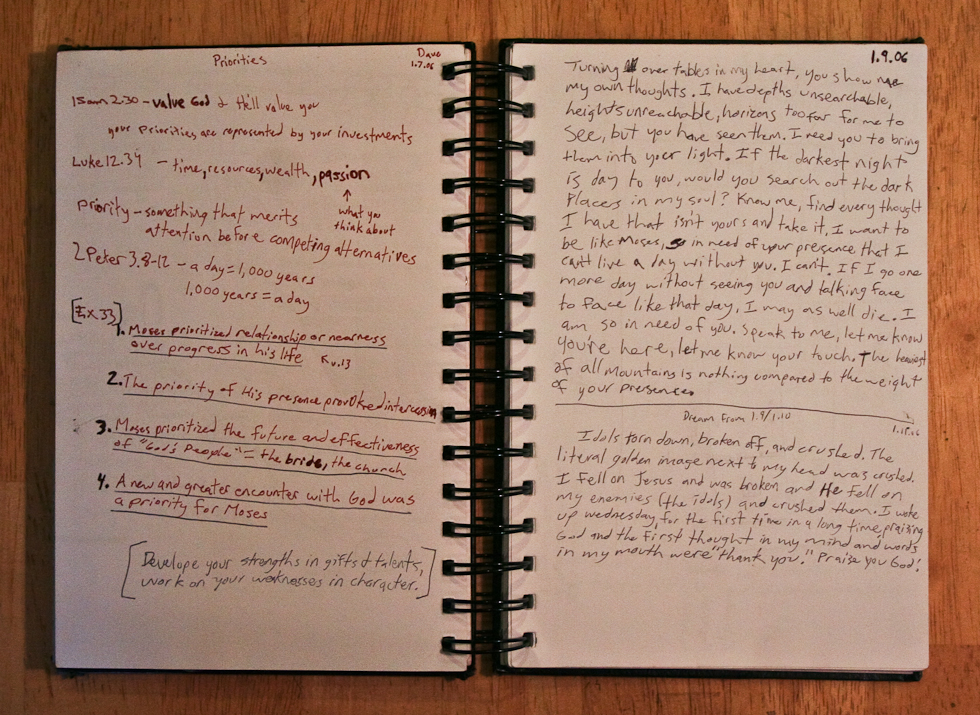 Priorities
Dave
1.7.06
1 Sam 2.30 - value God & He'll value you
your priorities are represented by your investments
Luke 12.34 - time, resources, wealth, passion
↑
what you
think about
Priority - something that merits
attention before competing alternatives
2 Peter 3.8-12 - a day = 1,000 years
1,000 years = a day
[Ex 33]
1. Moses prioritized relationship or nearness
over progress in his life ↖v.13
2. The priority of His presence provoked intercession
3. Moses prioritized the future and effectiveness
of "God's People" = the bride, the church
4. A new and greater encounter with God was
a priority for Moses
[Develope your strengths in gifts & talents,
work on your weaknesses in character.]
1.9.06
Turning over tables in my heart, you show me
my own thoughts. I have depths unsearchable,
heights unreachable, horizons too far for me to
see, but you have seen them. I need you to bring
them into your light. If the darkest night
is day to you, would you search out the dark
places in my soul? Know me, find every thought
I have that isn't yours and take it. I want to
be like Moses, so in need of your presence that I
can't live a day without you. I can't. If I go one
more day without seeing you and talking face
to face like that day, I may as well die. I
am so in need of you. Speak to me, let me know
you're here, let me know your touch. The heaviest
of all mountains is nothing compared to the weight
of your presence.
Dream from 1.9/1.10
Idols torn down, broken off, and crushed. The
literal golden image next to my head was crushed.
I fell on Jesus and was broken and He fell on
my enemies (the idols) and crushed them. I woke
up wednesday, for the first time in a long time, praising
God and the first thought in my mind and words
in my mouth were "thank you." Praise you God!